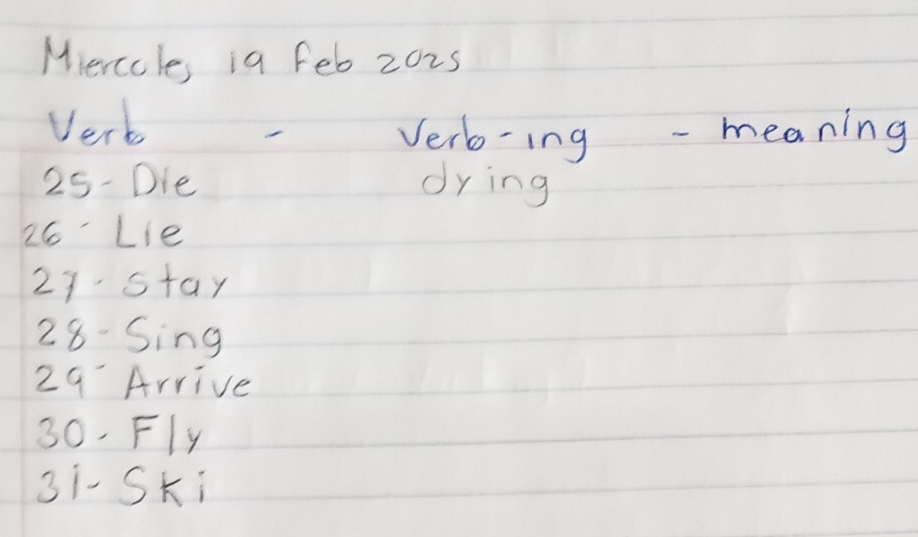 Miercoles 19 Feb 2025
Verb - Verb-ing - meaning
25- Die dying
26- Lie
27- Stay
28- Sing
29- Arrive
30- Fly
31- Ski